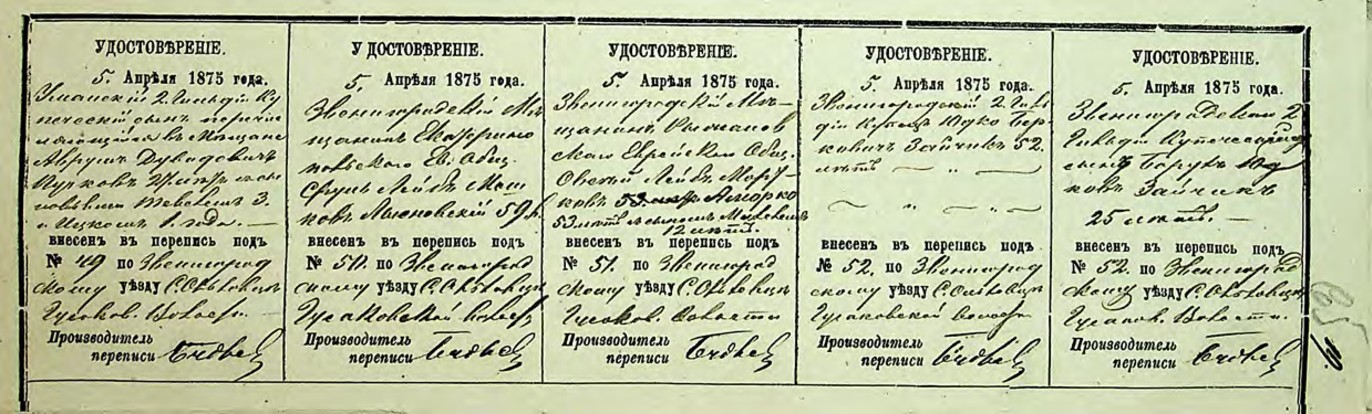 УДОСТОВѢРЕНІЕ.
5. Апрѣля 1875 года.
Уманскій 2. Гильдіи Ку-
печескій сынъ
въ Мѣщане
Аврумъ Дувидовичъ
27. лѣтъ съ сы-
новьями 3.
и Ицкомъ 1. года. —
внесенъ въ перепись подъ
№ 49 по Звенигород
скому уѣзду С.
Гусаков. Волости. —
Производитель
переписи
УДОСТОВѢРЕНІЕ.
5. Апрѣля 1875 года.
Звенигородскій Мѣ-
щанинъ Екатерино
польскаго Ев. Общ.
Сруль Лейбъ Мош
ковъ Лысновскій 59 л.
внесенъ въ перепись подъ
№ 50. по Звенигород
скому уѣзду С.
Гусаковской волост.
Производитель
переписи
УДОСТОВѢРЕНІЕ.
5. Апрѣля 1875 года.
Звенигородскій Мѣ-
щанинъ
скаго Еврейскаго Общ.
Лейбъ Морд-
ковъ
53 лѣтъ съ сыномъ
12 лѣтъ.
внесенъ въ перепись подъ
№ 51. по Звенигород
скому уѣзду С.
Гусаков. Волости
Производитель
переписи
УДОСТОВѢРЕНІЕ.
5. Апрѣля 1875 года.
Звенигородскій 2. Гиль
діи Купецъ Юдко Бер-
ковичъ Зайчикъ 52.
лѣтъ — „ —
внесенъ въ перепись подъ
№ 52. по Звенигород
скому уѣзду С.
Гусаковской Волост.
Производитель
переписи
УДОСТОВѢРЕНІЕ.
5. Апрѣля 1875 года.
Звенигородскій 2
Гильдіи Купеческій
сынъ Борухъ Юд
ковъ Зайчикъ
25 лѣтъ. —
внесенъ въ перепись подъ
№ 52. по Звенигород
скому уѣзду С.
Гусаков. Волости.
Производитель
переписи